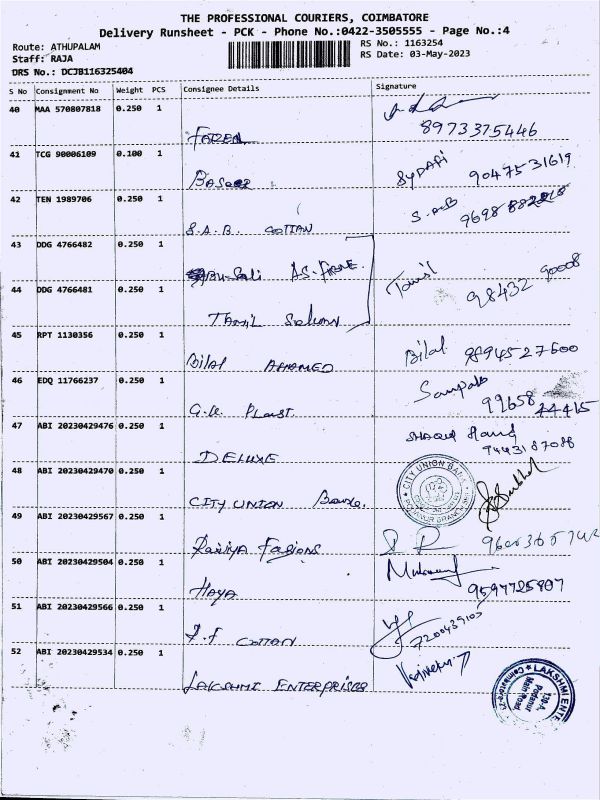 THE PROFESSIONAL COURIERS, COIMBATORE
Delivery Runsheet - PCK - Phone No.:0422-3505555 - Page No.:4
Route: ATHUPALAM
RS No.: 1163254
Staff: RAJA
RS Date: 03-May-2023
DRS No.: DCJB116325404
S No Consignment No Weight PCS Consignee Details Signature
40 MAA 570807818 0.250 1
8973375446
41 TCG 90006109 0.100 1
9047531619
42 TEN 1989706 0.250 1
S.A.B. COTTAN
S.A.B
43 DDG 4766482 0.250 1
Tamil
98432 90008
44 DDG 4766481 0.250 1
TAMIL
45 RPT 1130356 0.250 1
Bilal AHAMED
Bilal 9894527600
46 EDQ 11766237 0.250 1
99658 44415
47 ABI 20230429476 0.250 1
DELUXE
9443187088
48 ABI 20230429470 0.250 1
CITY UNION
CITY UNION BANK
49 ABI 20230429567 0.250 1
50 ABI 20230429504 0.250 1
HAYA
9597725907
51 ABI 20230429566 0.250 1
COTTAN
7200439107
52 ABI 20230429534 0.250 1
LAKSHMI ENTERPRISES
LAKSHMI ENTE
Podanur
Main Road